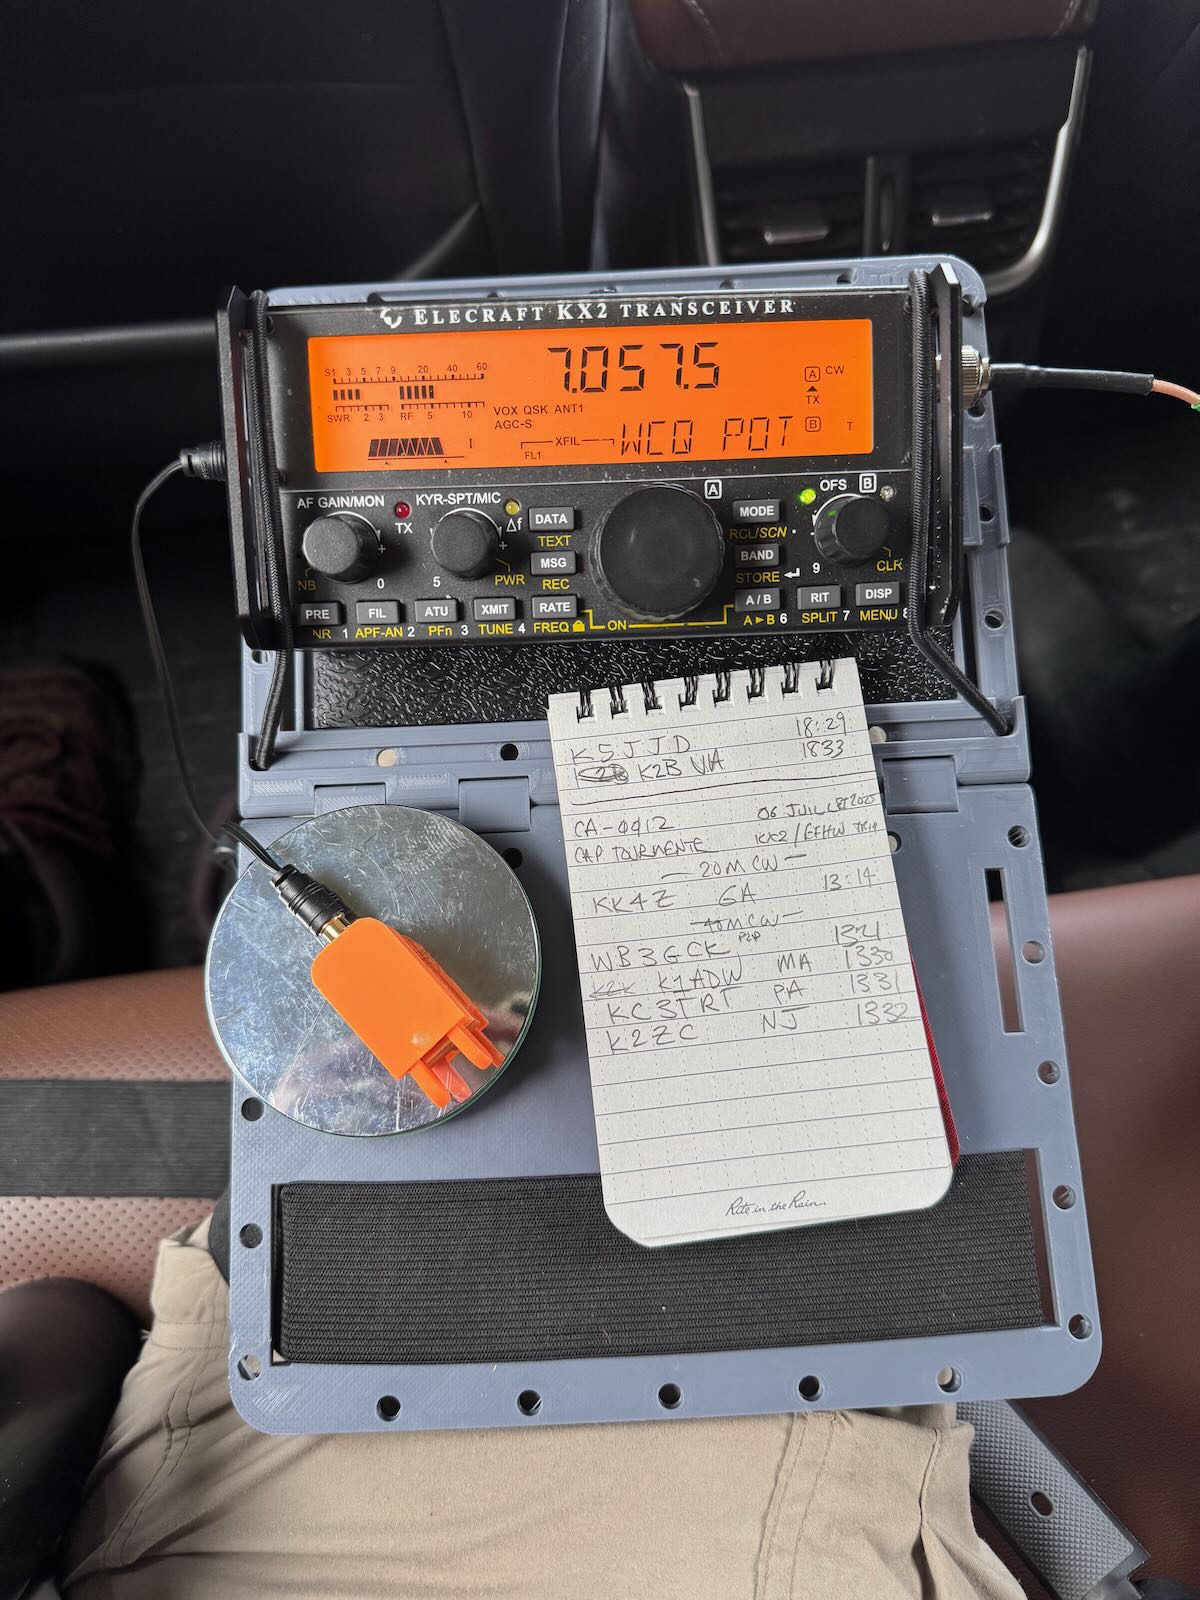 ELECRAFT KX2 TRANSCEIVER
S1 3 5 7 9 20 40 60
7.057.5
A CW
SWR 2 3 RF 5 10
TX
VOX QSK ANT1
AGC-S
B T
1
FL1 XFIL
WCQ POT
AF GAIN/MON
TX
KYR-SPT/MIC
Δf
DATA
TEXT
MSG
REC
A
MODE
RCL/SCN
BAND
STORE
OFS B
NB
0
5
PWR
9
CLR
PRE FIL ATU XMIT RATE A/B RIT DISP
NR 1 APF-AN 2 PFn 3 TUNE 4 FREQ ON A►B 6 SPLIT 7 MENU 8
K5JJD 18:29
K2B VA 1833
CA-0912 06 JUILLET 2025
CAP TOURMENTE KX2/EFHW
— 20M CW —
KK4Z GA 13:14
40M CW —
P2P
WB3GCK 1321
K2K K1ADW MA 1330
KC3TRT PA 1331
K2ZC NJ 1332
Rite in the Rain